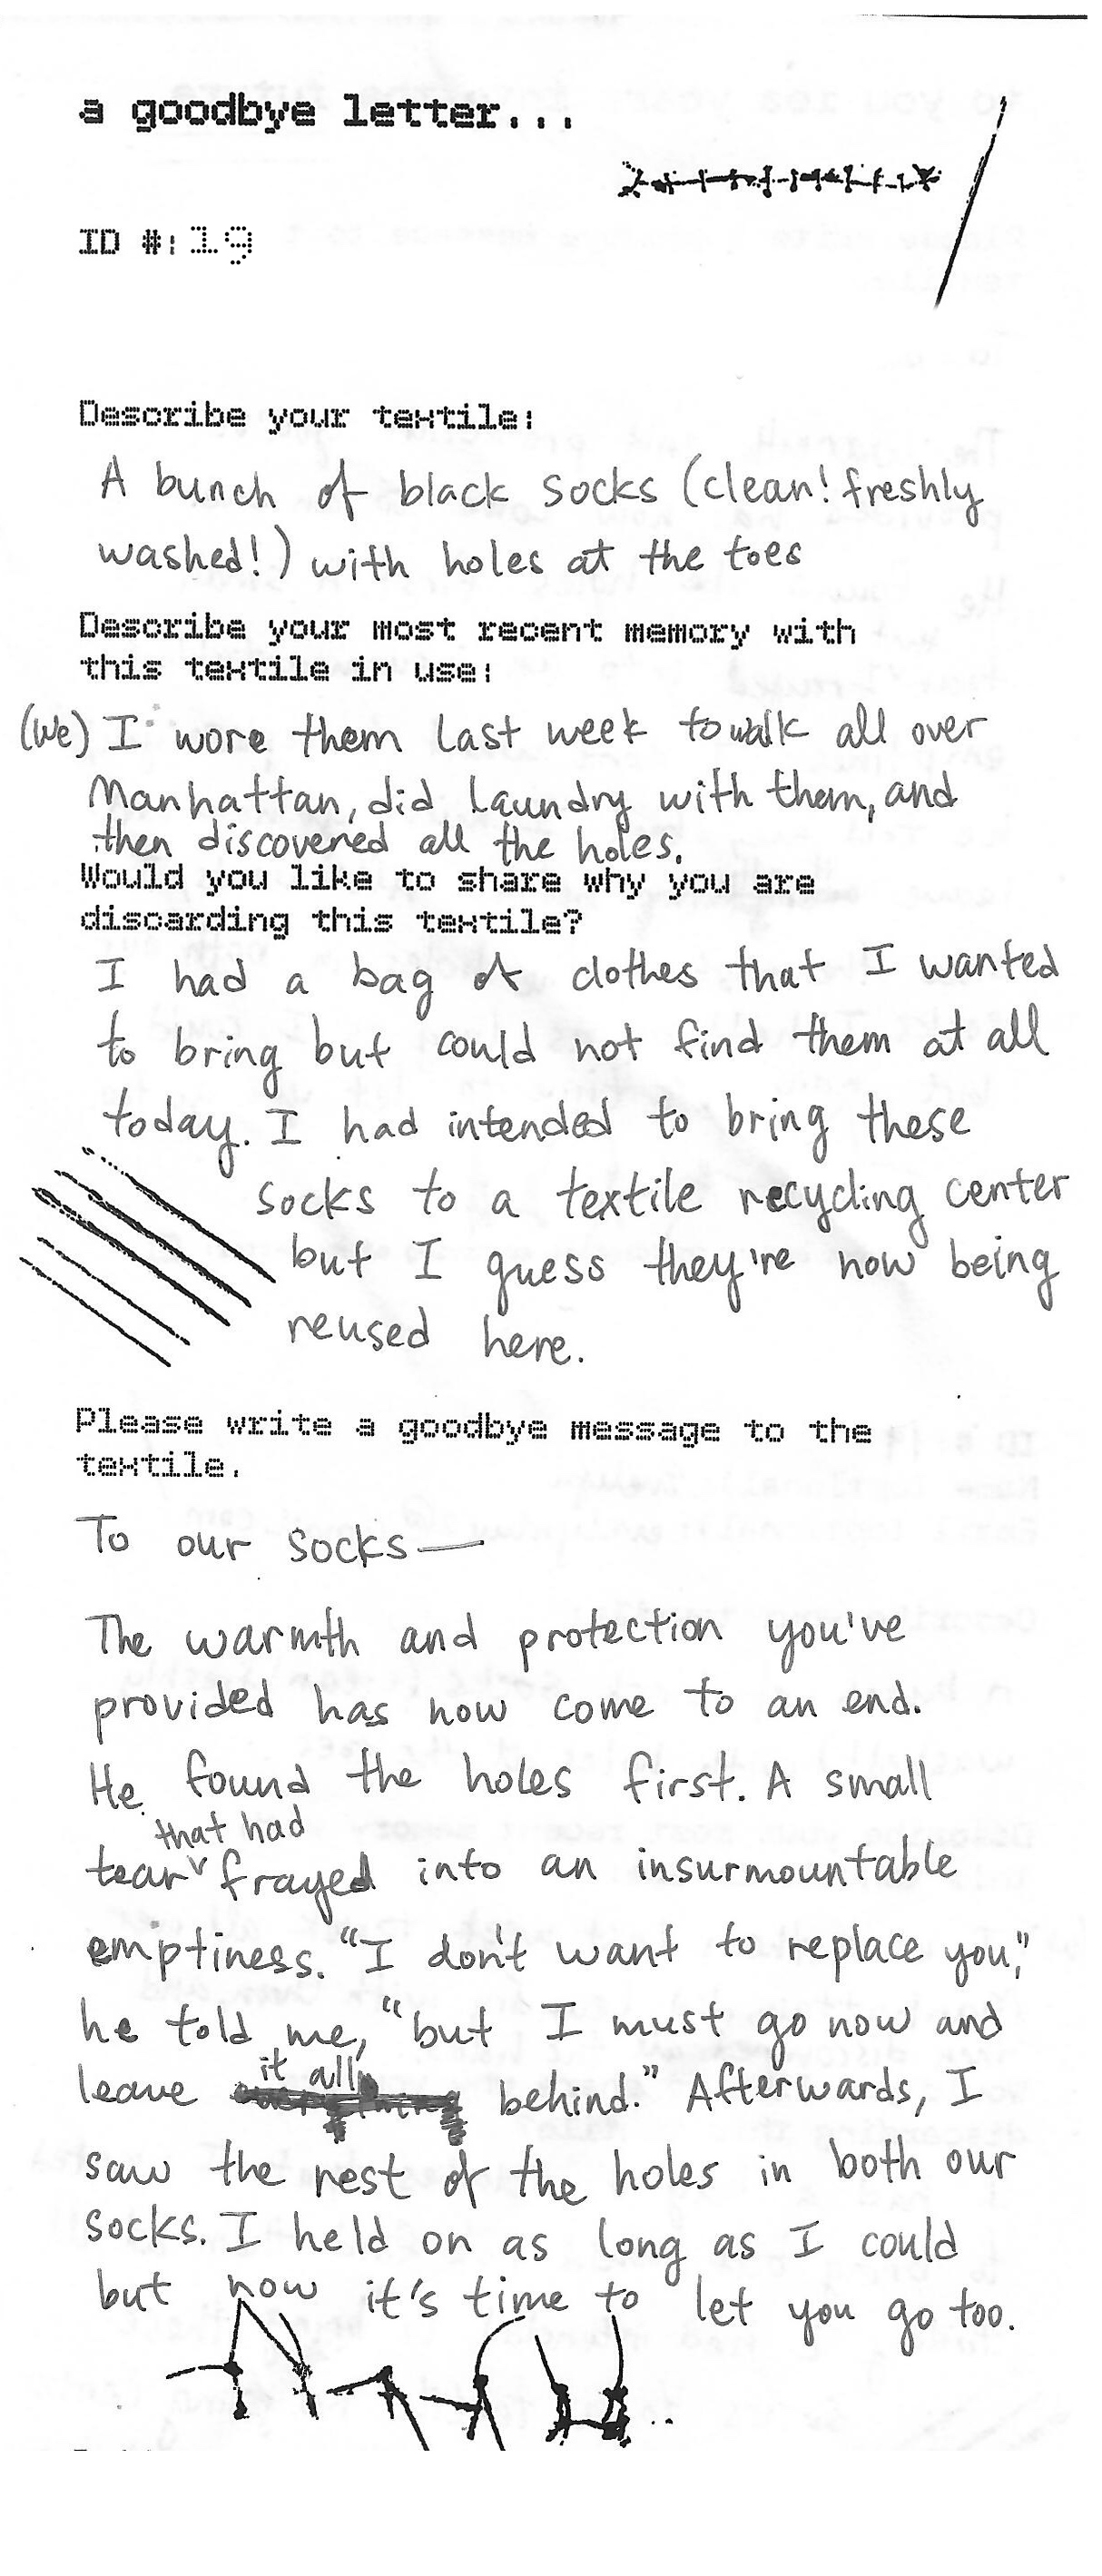 a goodbye letter...
ID #: 19
Describe your textile:
A bunch of black socks (clean! freshly
washed!) with holes at the toes
Describe your most recent memory with
this textile in use:
(We) I wore them last week to walk all over
Manhattan, did laundry with them, and
then discovered all the holes.
Would you like to share why you are
discarding this textile?
I had a bag of clothes that I wanted
to bring but could not find them at all
today. I had intended to bring these
socks to a textile recycling center
but I guess they're now being
reused here.
Please write a goodbye message to the
textile.
To our socks—
The warmth and protection you've
provided has now come to an end.
He found the holes first. A small
that had
tear frayed into an insurmountable
emptiness. "I don't want to replace you,"
he told me, "but I must go now and
it all
leave behind." Afterwards, I
saw the rest of the holes in both our
socks. I held on as long as I could
but now it's time to let you go too.